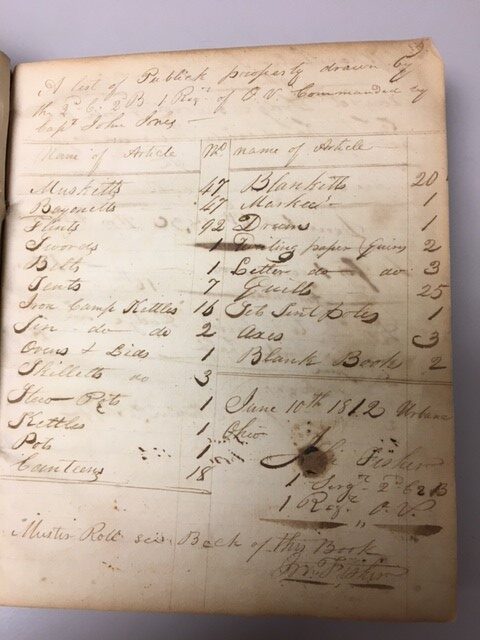 A list of Publick property drawn by
the 2d C. 2 B 1 Regt of O. V. Commanded by
Capt John Jones
Name of Article No
Musketts 47
Bayonetts 47
Flints 92
Swords 1
Belts 1
Tents 7
Iron Camp Kettles
Tin do do 2
Ovens & Lids 1
Skilletts do 3
Stew Pots 1
Kettles 1
Pots 1
Canteens 18
name of Article
Blanketts 20
Markee 1
Drum 1
paper Quires 2
Letter do do 3
Quills 25
Tent poles 1
Axes 3
Blank Book 2
June 10th 1812 Urbana
Ohio
Fisher
1 Sergt 2d C 2 B
1 Regt O. V.
Muster Roll see Back of this Book
Fisher